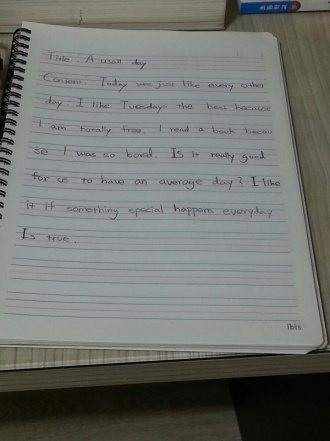 Title : A usall day
Content: Today was just like every other
day. I like Tuesdays the best because
I am totally free. I read a book becau
se I was so bored. Is it really good
for us to have an average day? I like
it if something special happens everyday
Is true.
ibis